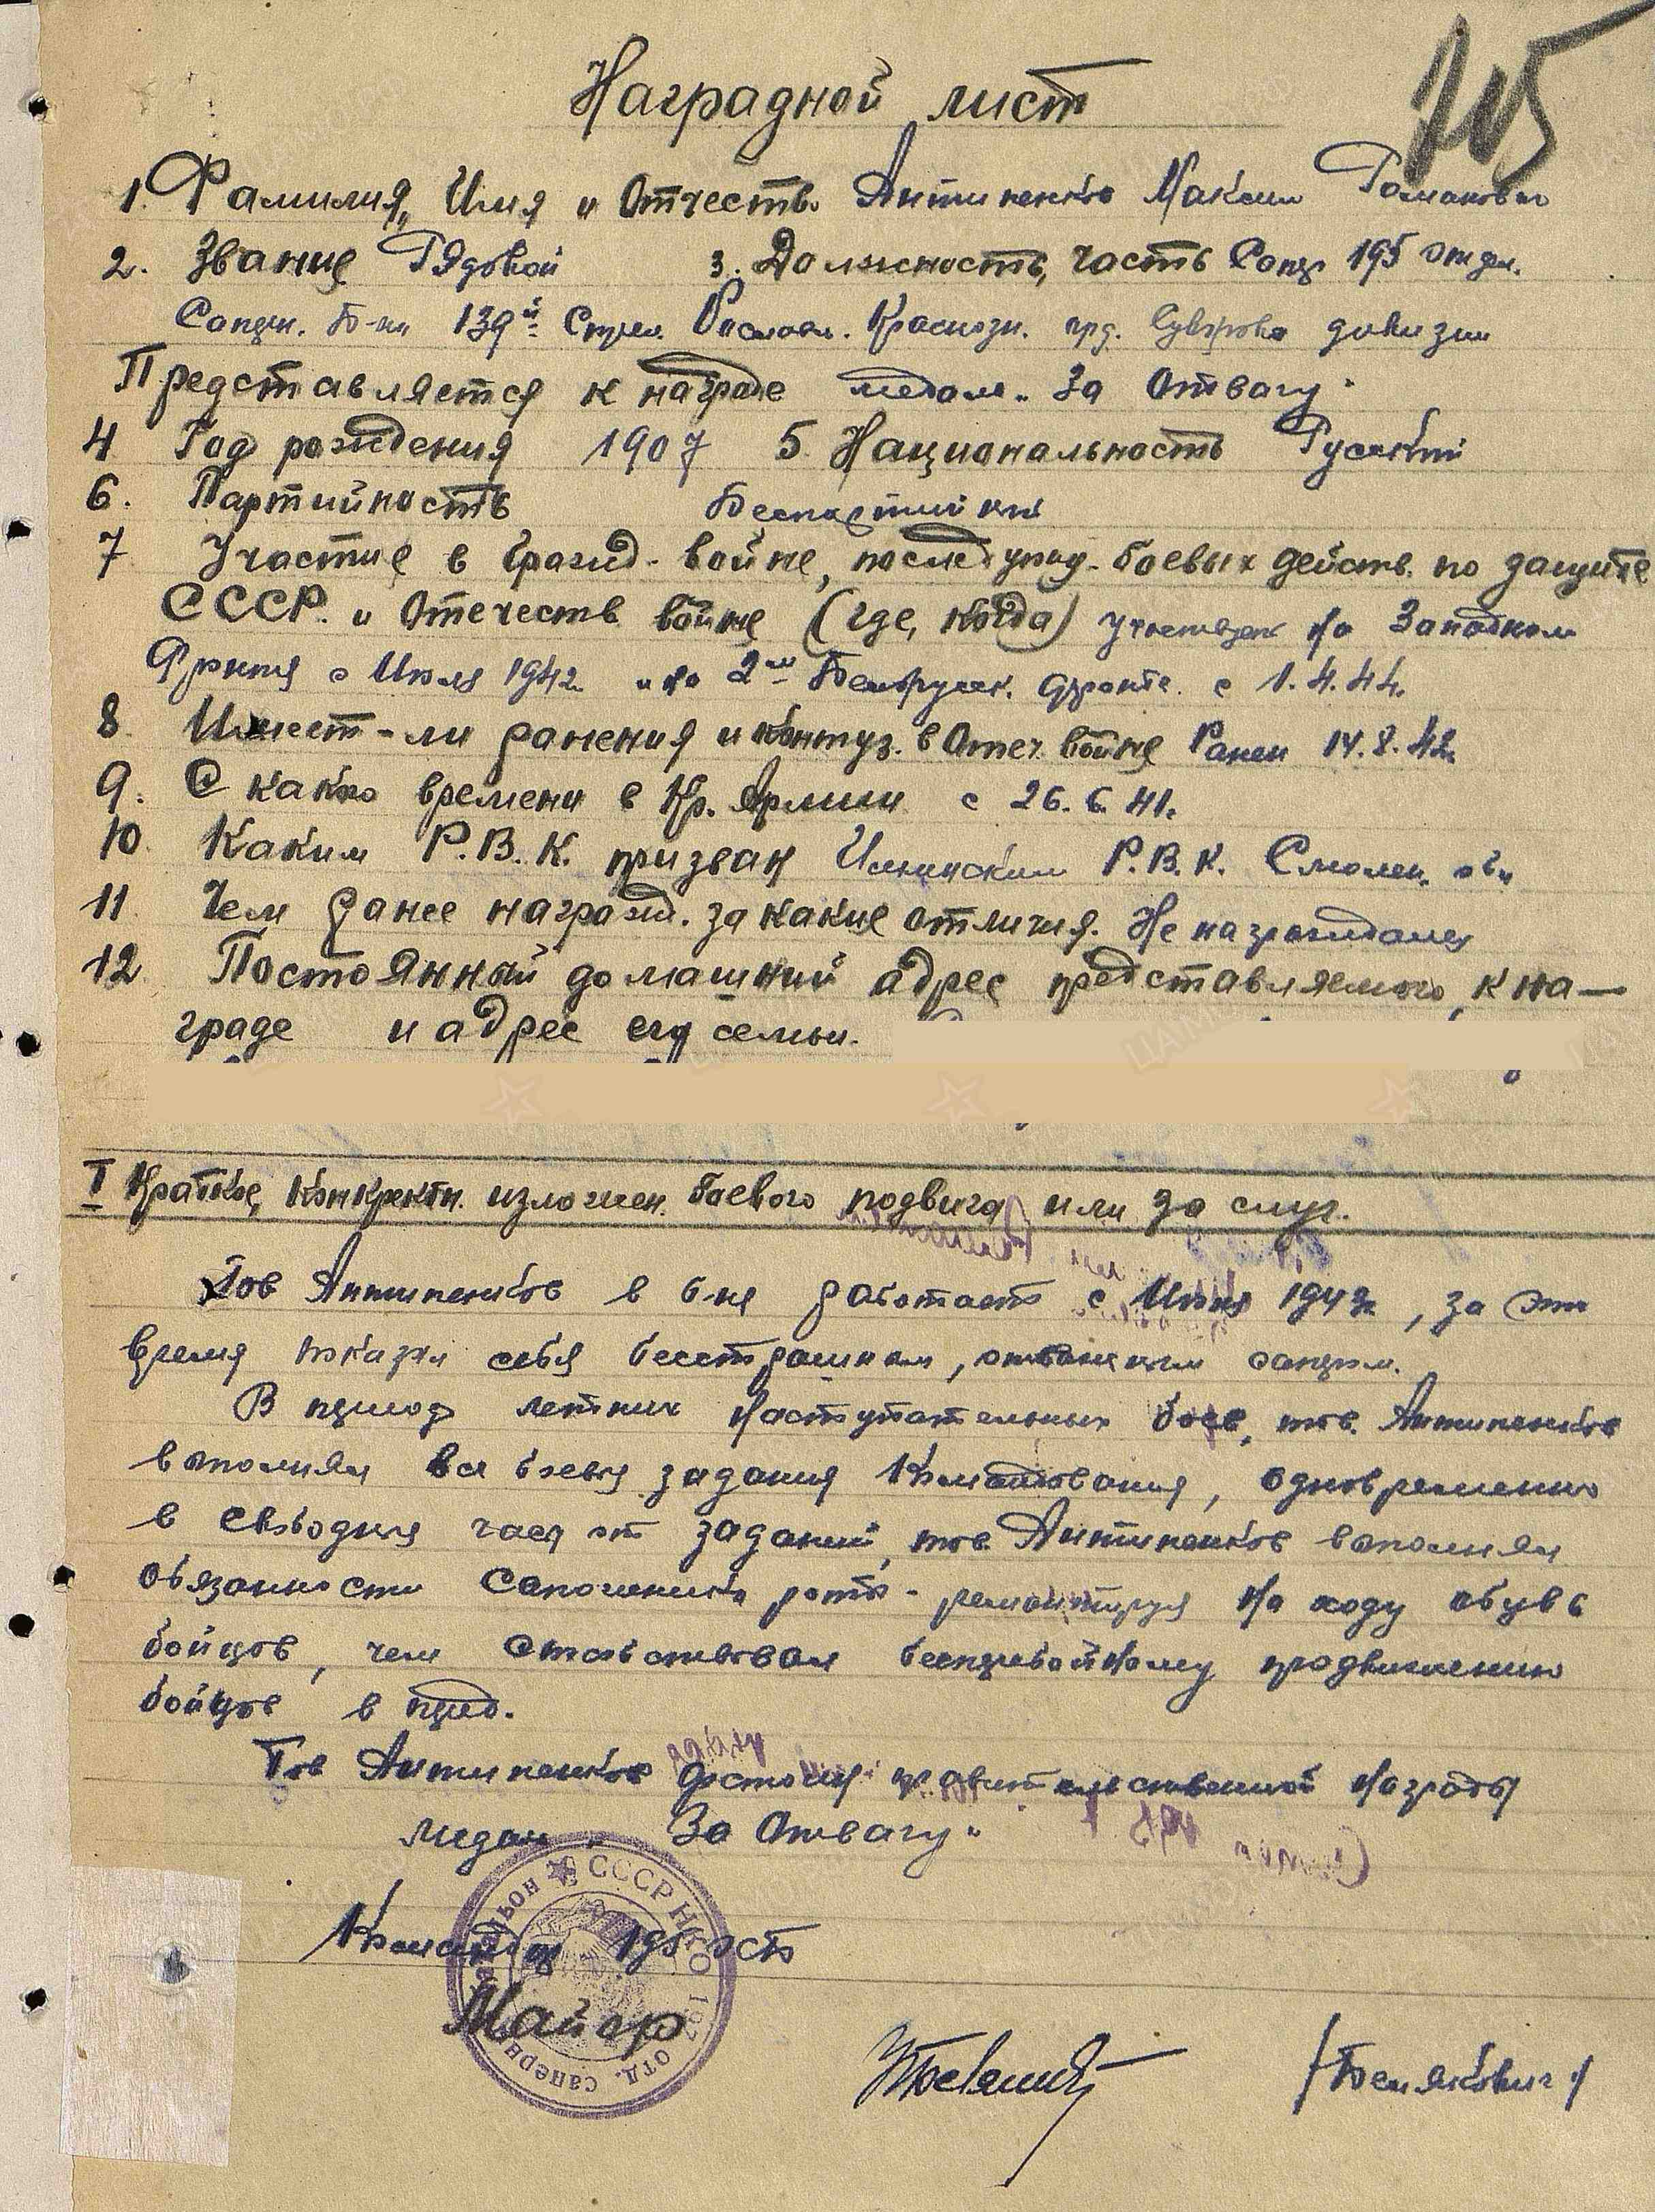 705
Наградной лист
1. Фамилия, Имя и Отчеств. Антипенков Максим Романович
2. Звание Рядовой 3. Должность, часть Сапер 195 отдел.
Саперн. б-на 139й Стрел. Рославл. Краснозн. орд. Суворова дивизии
Представляется к награде медали „За Отвагу"
4 Год рождения 1907 5. Национальность Русский
6. Партийность Беспартийный
7 Участие в гражд. войне, последующ. боевых действ. по защите
СССР. и Отечеств войне (где, когда) участвует на Западном
Фронте с Июля 1942 и на 2м Белорусск. фронте с 1.4.44.
8 Имеет-ли ранения и контуз. в Отеч. войне Ранен 14.8.42
9. С каково времени в Кр. Армии с 26.6.41.
10. Каким Р.В.К. призван Р.В.К. Смолен. обл
11 Чем ранее награжд. за какие отличия. Не награждался
12 Постоянный домашний адрес представляемого к на-
граде и адрес его семьи.
I Краткое, конкретн. изложен. боевого подвига или заслуг.
Тов Антипенков в б-не работает с 194, за это
время показал себя бесстрашным, отважным сапером.
В период летних наступательных боев, тов. Антипенков
выполнял все боевые задания Командования, одновременно
в свободные часы от заданий, тов Антипенков выполнял
обязанности сапожника роты - ремонтируя на ходу обувь
бойцов, чем способствовал бесперебойному продвижению
бойцов в перед.
Тов Антипенков достоин правительственной награды
медали „За Отвагу"
Командир 195 осб
Майор
/Белякович/
СССР НКО 195 отд. саперный батальон